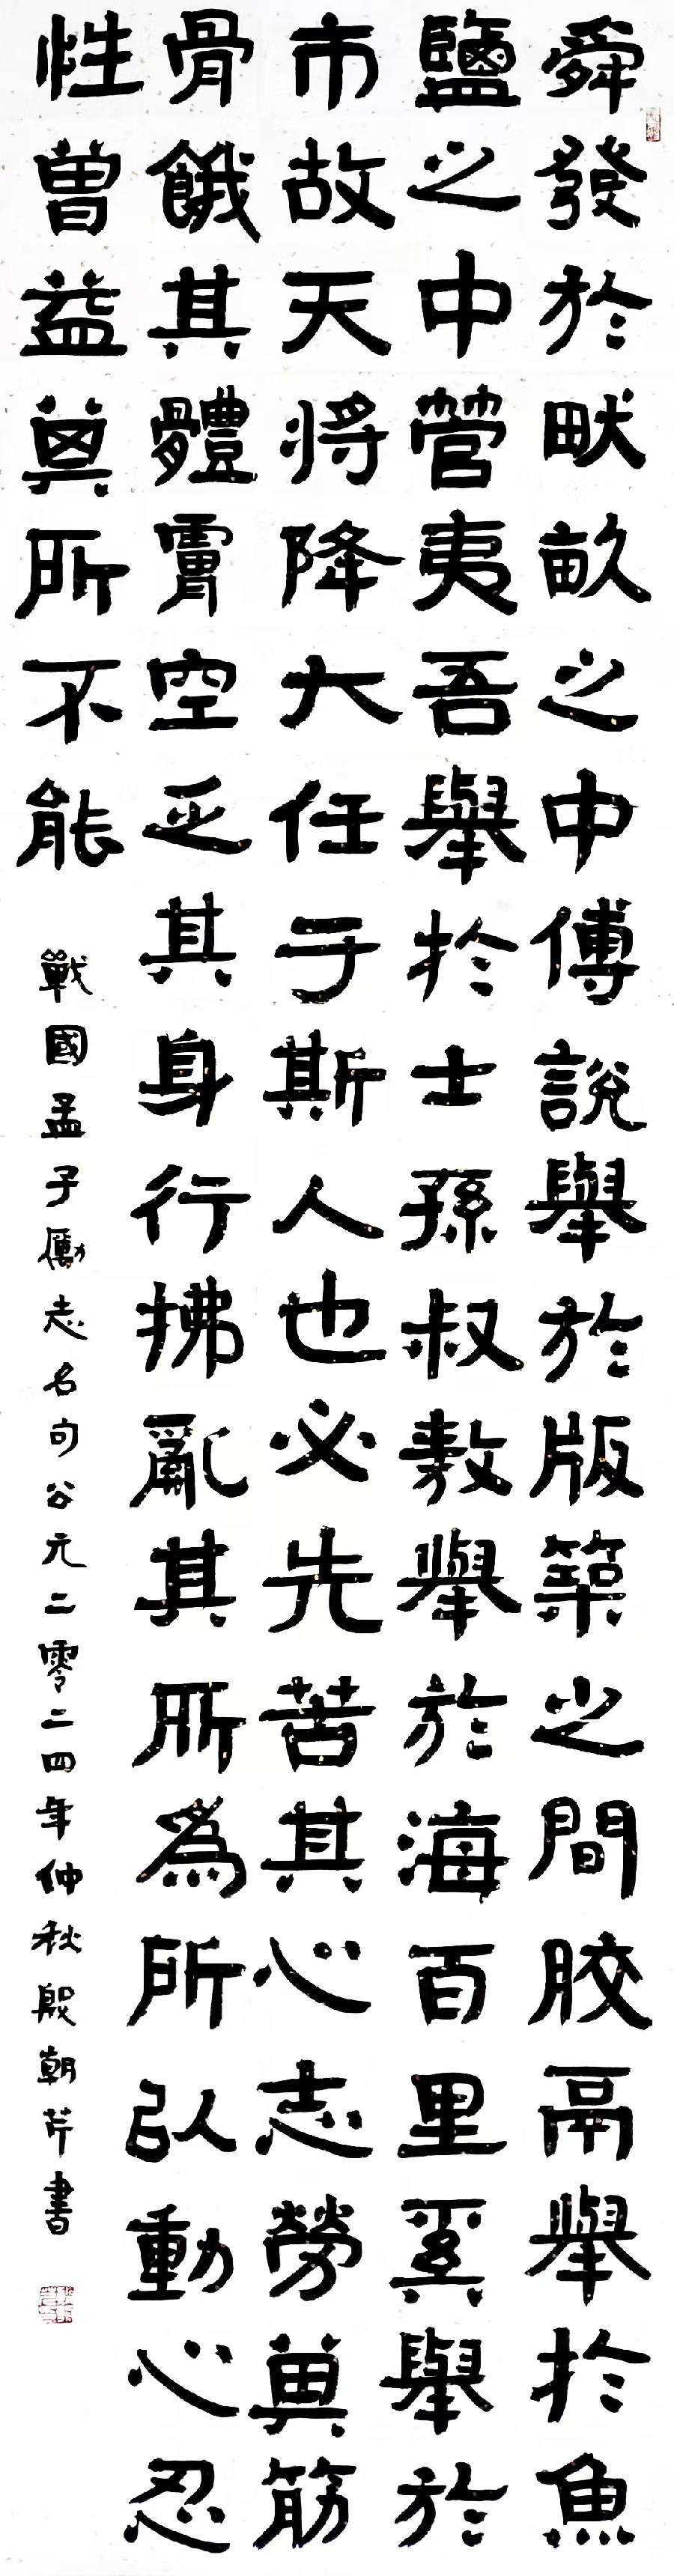 舜發於畎畝之中傅說舉於版築之間膠鬲舉於魚
鹽之中管夷吾舉於士孫叔敖舉於海百里奚舉於
市故天將降大任于斯人也必先苦其心志勞其筋
骨餓其體膚空乏其身行拂亂其所為所以動心忍
性曾益其所不能
戰國孟子勵志名句公元二零二四年仲秋殷朝芹書